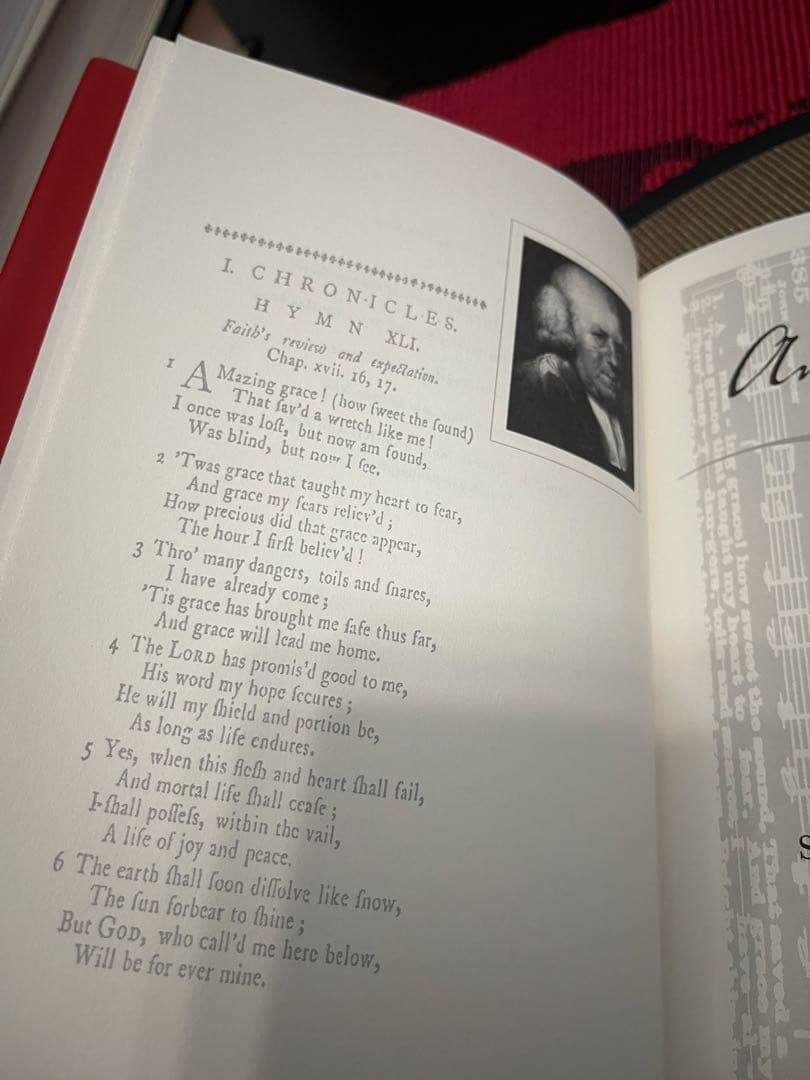 I. CHRONICLES.
HYMN XLI.
Faith's review and expectation.
Chap. xvii. 16, 17.
1 AMazing grace! (how ſweet the ſound)
That ſav'd a wretch like me!
I once was loſt, but now am found,
Was blind, but now I ſee.
2 'Twas grace that taught my heart to fear,
And grace my fears reliev'd;
How precious did that grace appear,
The hour I firſt believ'd!
3 Thro' many dangers, toils and ſnares,
I have already come;
'Tis grace has brought me ſafe thus far,
And grace will lead me home.
4 The LORD has promis'd good to me,
His word my hope ſecures;
He will my ſhield and portion be,
As long as life endures.
5 Yes, when this fleſh and heart ſhall fail,
And mortal life ſhall ceaſe;
I ſhall poſſeſs, within the vail,
A life of joy and peace.
6 The earth ſhall ſoon diſſolve like ſnow,
The ſun forbear to ſhine;
But GOD, who call'd me here below,
Will be for ever mine.